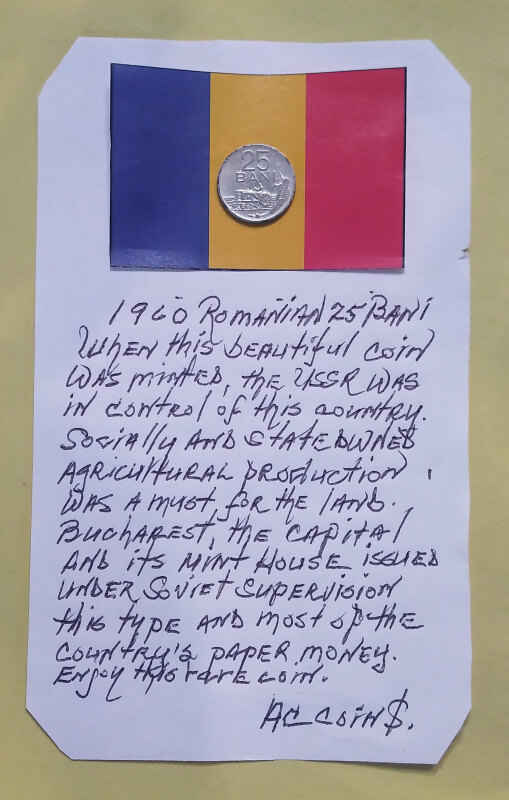 25
BANI
1960 ROMANIAN 25 BANI
When this beautiful coin
was minted, the USSR was
in control of this country.
Socially and state owned
agricultural production
was a must for the land.
Bucharest, the capital
and its mint house issued
under Soviet supervision
this type and most of the
country's paper money.
Enjoy this rare coin.
AC COIN$.